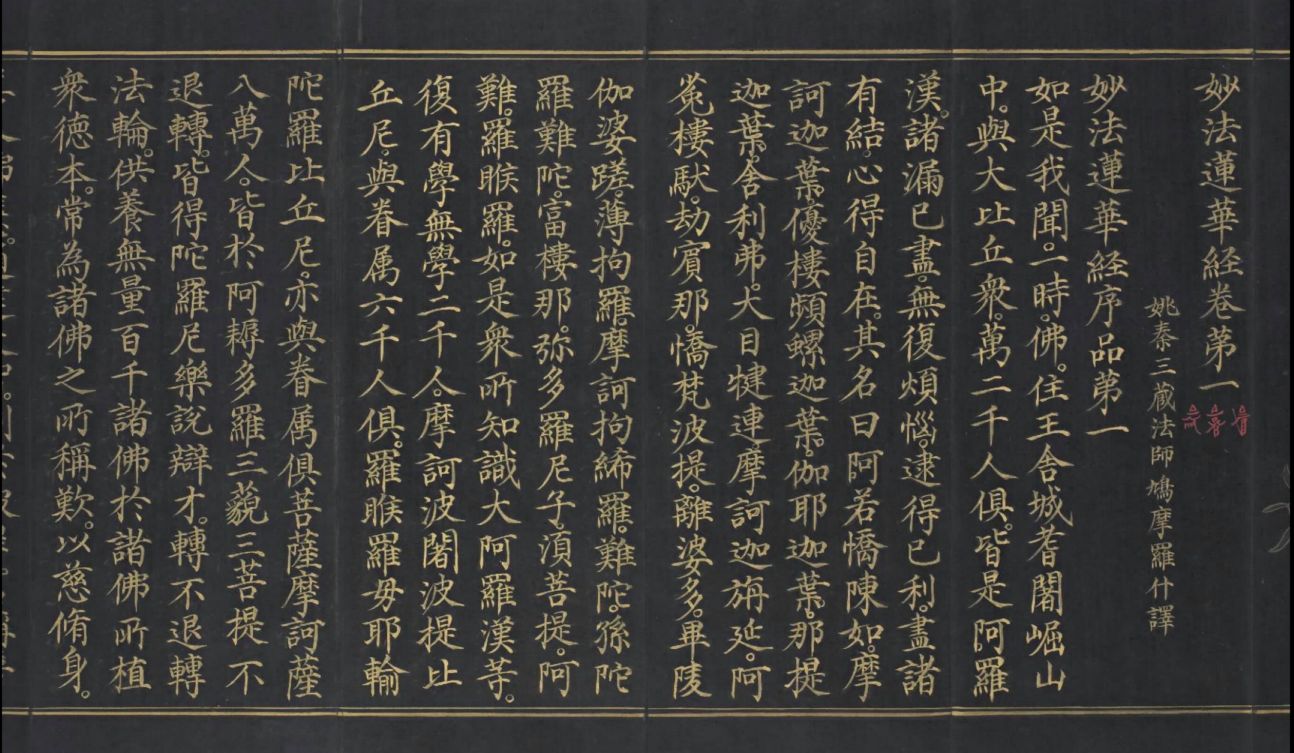 妙法蓮華経巻第一
姚秦三蔵法師鳩摩羅什譯
妙法蓮華経序品第一
如是我聞。一時。佛。住王舎城耆闍崛山
中。與大比丘衆。萬二千人俱。皆是阿羅
漢。諸漏已盡。無復煩惱。逮得己利。盡諸
有結。心得自在。其名曰阿若憍陳如。摩
訶迦葉。優樓頻螺迦葉。伽耶迦葉。那提
迦葉。舎利弗。大目犍連。摩訶迦旃延。阿
㝹樓馱。劫賓那。憍梵波提。離婆多。畢陵
伽婆蹉。薄拘羅。摩訶拘絺羅。難陀。孫陀
羅難陀。富樓那。弥多羅尼子。湏菩提。阿
難。羅睺羅。如是衆所知識大阿羅漢等。
復有學無學二千人。摩訶波闍波提比
丘尼與眷属六千人俱。羅睺羅母耶輸
陀羅比丘尼。亦與眷属俱菩薩摩訶薩
八萬人。皆於阿耨多羅三藐三菩提不
退轉。皆得陀羅尼樂說辯才。轉不退轉
法輪。供養無量百千諸佛於諸佛所植
衆徳本。常為諸佛之所稱歎。以慈脩身。